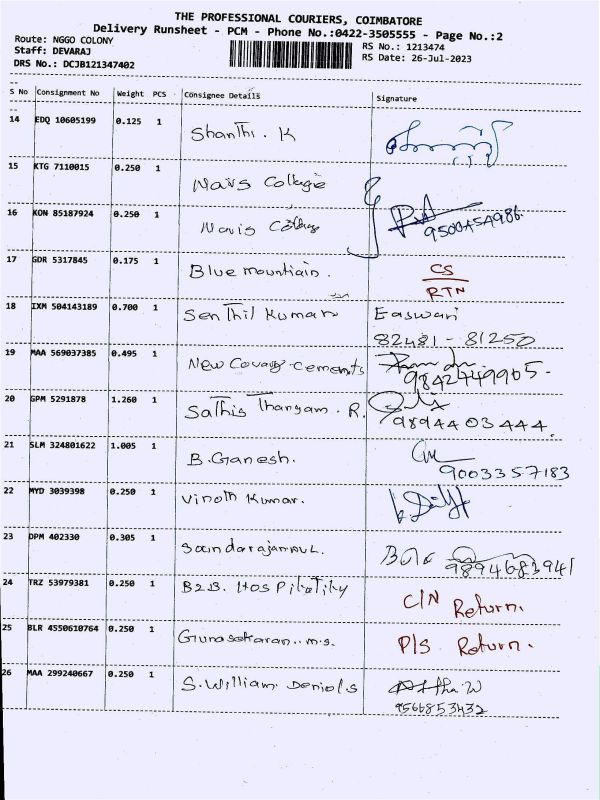 THE PROFESSIONAL COURIERS, COIMBATORE
Delivery Runsheet - PCM - Phone No.:0422-3505555 - Page No.:2
Route: NGGO COLONY
RS No.: 1213474
Staff: DEVARAJ
RS Date: 26-Jul-2023
DRS No.: DCJB121347402
S No Consignment No Weight PCS Consignee Details Signature
14 EDQ 10605199 0.125 1 Shanthi. K
15 KTG 7110015 0.250 1 College
16 KON 85187924 0.250 1 College
9500454986.
17 GDR 5317845 0.175 1 Blue mountian. CS
RTN
18 IXM 504143189 0.700 1 Senthil Kumar Easwari
82481 - 81250
19 MAA 569037385 0.495 1 New Cements
9842749905.
20 GPM 5291878 1.260 1 Sathis Thangam. R.
9894403444.
21 SLM 324801622 1.005 1 B. Ganesh.
9003357183
22 MYD 3039398 0.250 1 Vinoth Kumar.
23 DPM 402330 0.305 1
9894683941
24 TRZ 53979381 0.250 1 B2B. Hospitality C/N Return.
25 BLR 4550610764 0.250 1 Gunasekaran. m.s. P/S Return.
26 MAA 299240667 0.250 1 S. William Deniols
9566853432